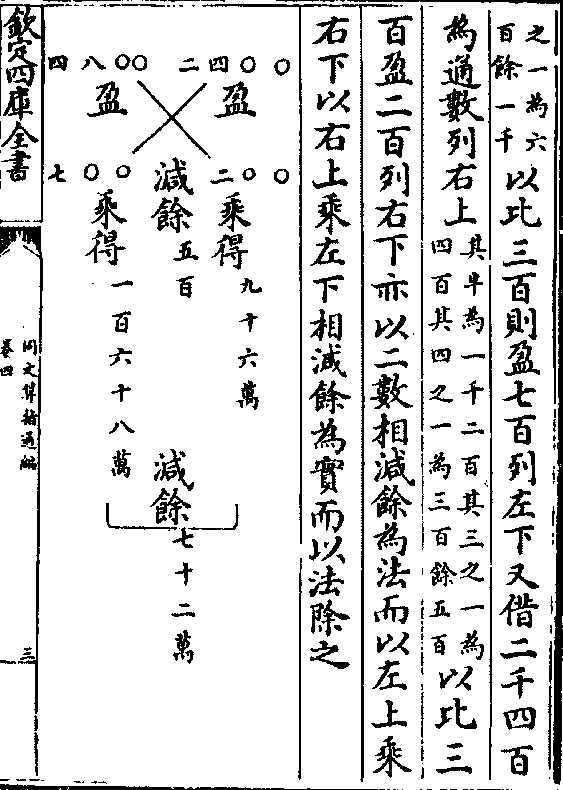 之一為六
百餘一千
以比三百則盈七百列左下又借二千四百
為通數列右上
其半為一千二百其三之一為
四百其四之一為三百餘五百
以比三
百盈二百列右下亦以二數相減餘為法而以左上乘
右下以右上乘左下相減餘為實而以法除之
二四〇〇
盈
二〇〇
乘得
九十六萬
減餘
五百
減餘
七十二萬
四八〇〇
盈
七〇〇
乘得
一百六十八萬
欽定四庫全書
同文算指通編
卷四
三